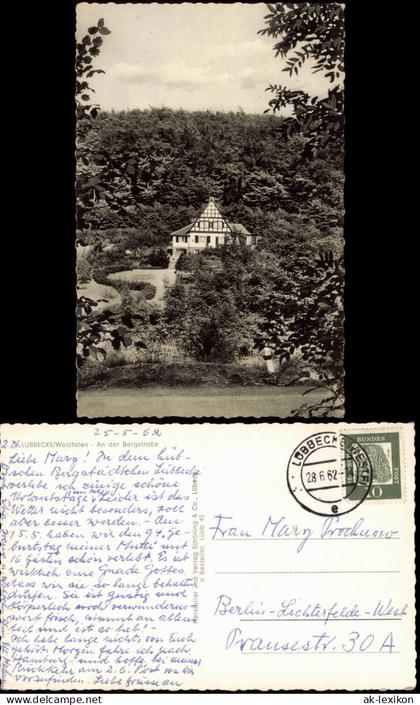 25-5-62
LÜBBECKE/Westfalen - An der Bergstraße
Liebe Marg! In dem hüb-
schen Bergstädtchen Lübbecke
verlebe ich einige schöne
Urlaubstage. Leider ist das
Wetter nicht besonders, soll
aber besser werden. - Am
15.5. haben wir den 94. Ge-
burtstag meiner Mutti mit
16 Gästen schön verlebt. Es ist
wirklich eine Gnade Gottes
dass wir sie so lange behalten
dürfen. Sie ist geistig und
körperlich noch verwunderns
wert frisch, nimmt an allem
teil und ist so lieb! -
Ich habe lange nichts von Euch
gehört. Morgen fahre ich nach
Hamburg und hoffe, bei meiner
Rückkehr am 2.6. Post von
vorzufinden. Liebe Grüsse an
Hersteller und Verlag Schöning & Co., Lübeck
Bestellnr. Lübb 45
LÜBBECKE (WESTF)
28.6.62
e
DEUTSCHE BUNDESPOST
10
Frau Marg Prochnow
Berlin-Lichterfelde-West
Transestr. 30 A
ak-lexikon
ak-lexikon.com